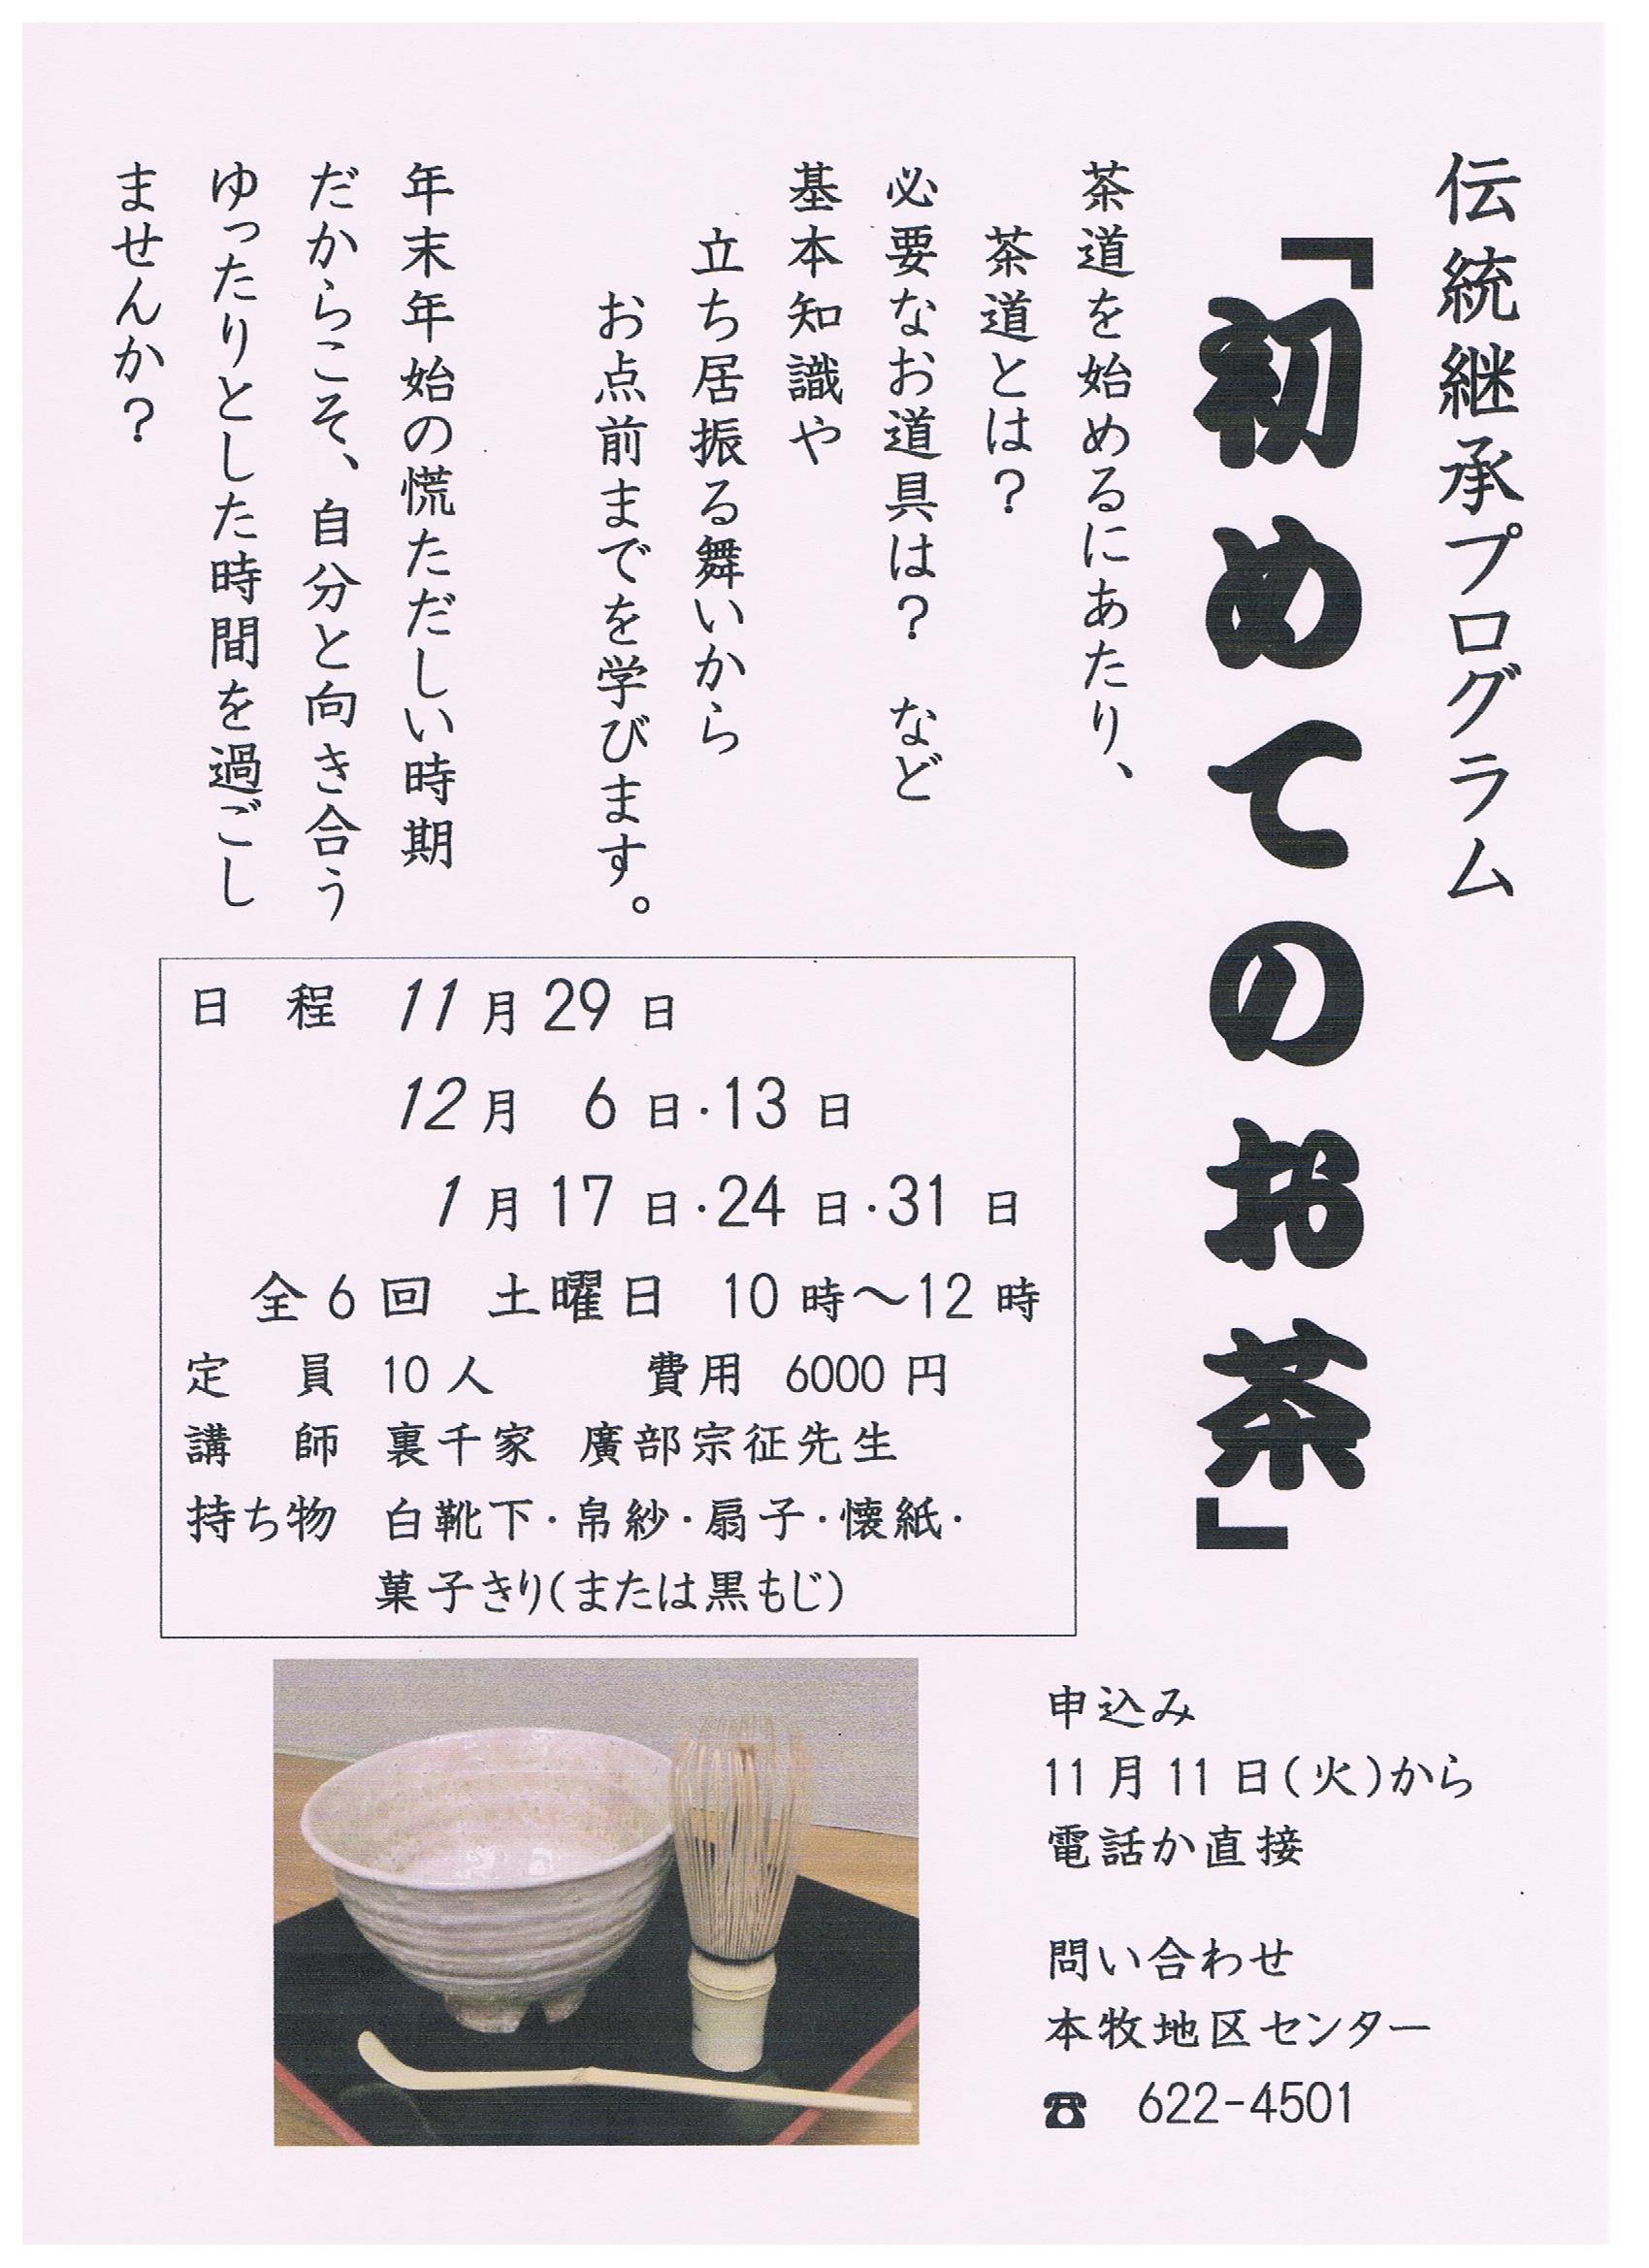 伝統継承プログラム
「初めてのお茶」
茶道を始めるにあたり、
茶道とは？
必要なお道具は？　など
基本知識や
立ち居振る舞いから
お点前までを学びます。
年末年始の慌ただしい時期
だからこそ、自分と向き合う
ゆったりとした時間を過ごし
ませんか？
日　程　11月29日
12月　6日・13日
1月17日・24日・31日
全6回　土曜日　10時～12時
定　員　10人　　費用　6000円
講　師　裏千家　廣部宗征先生
持ち物　白靴下・帛紗・扇子・懐紙・
菓子きり（または黒もじ）
申込み
11月11日（火）から
電話か直接
問い合わせ
本牧地区センター
☎　622-4501